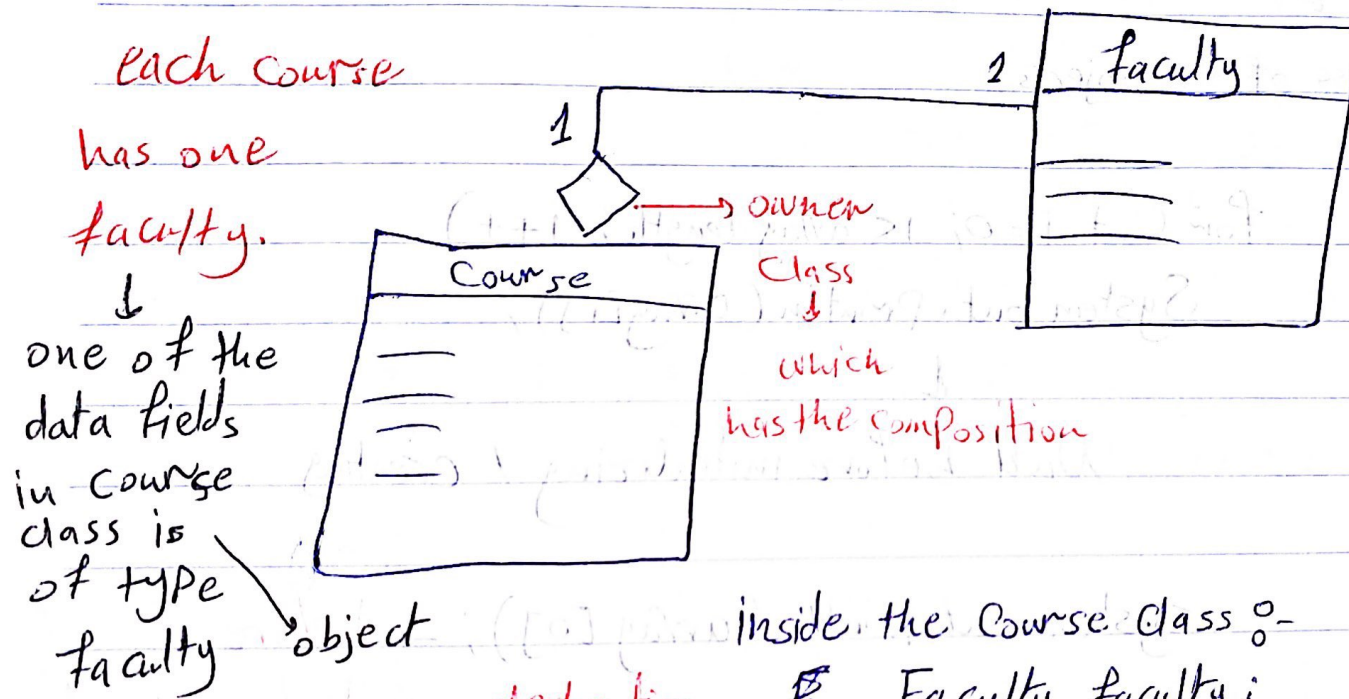 each Course
has one
faculty.
one of the
data fields
in course
class is
of type
faculty
object
1
1
faculty
Course
owner
Class
which
has the composition
inside the Course Class :-
Faculty faculty;